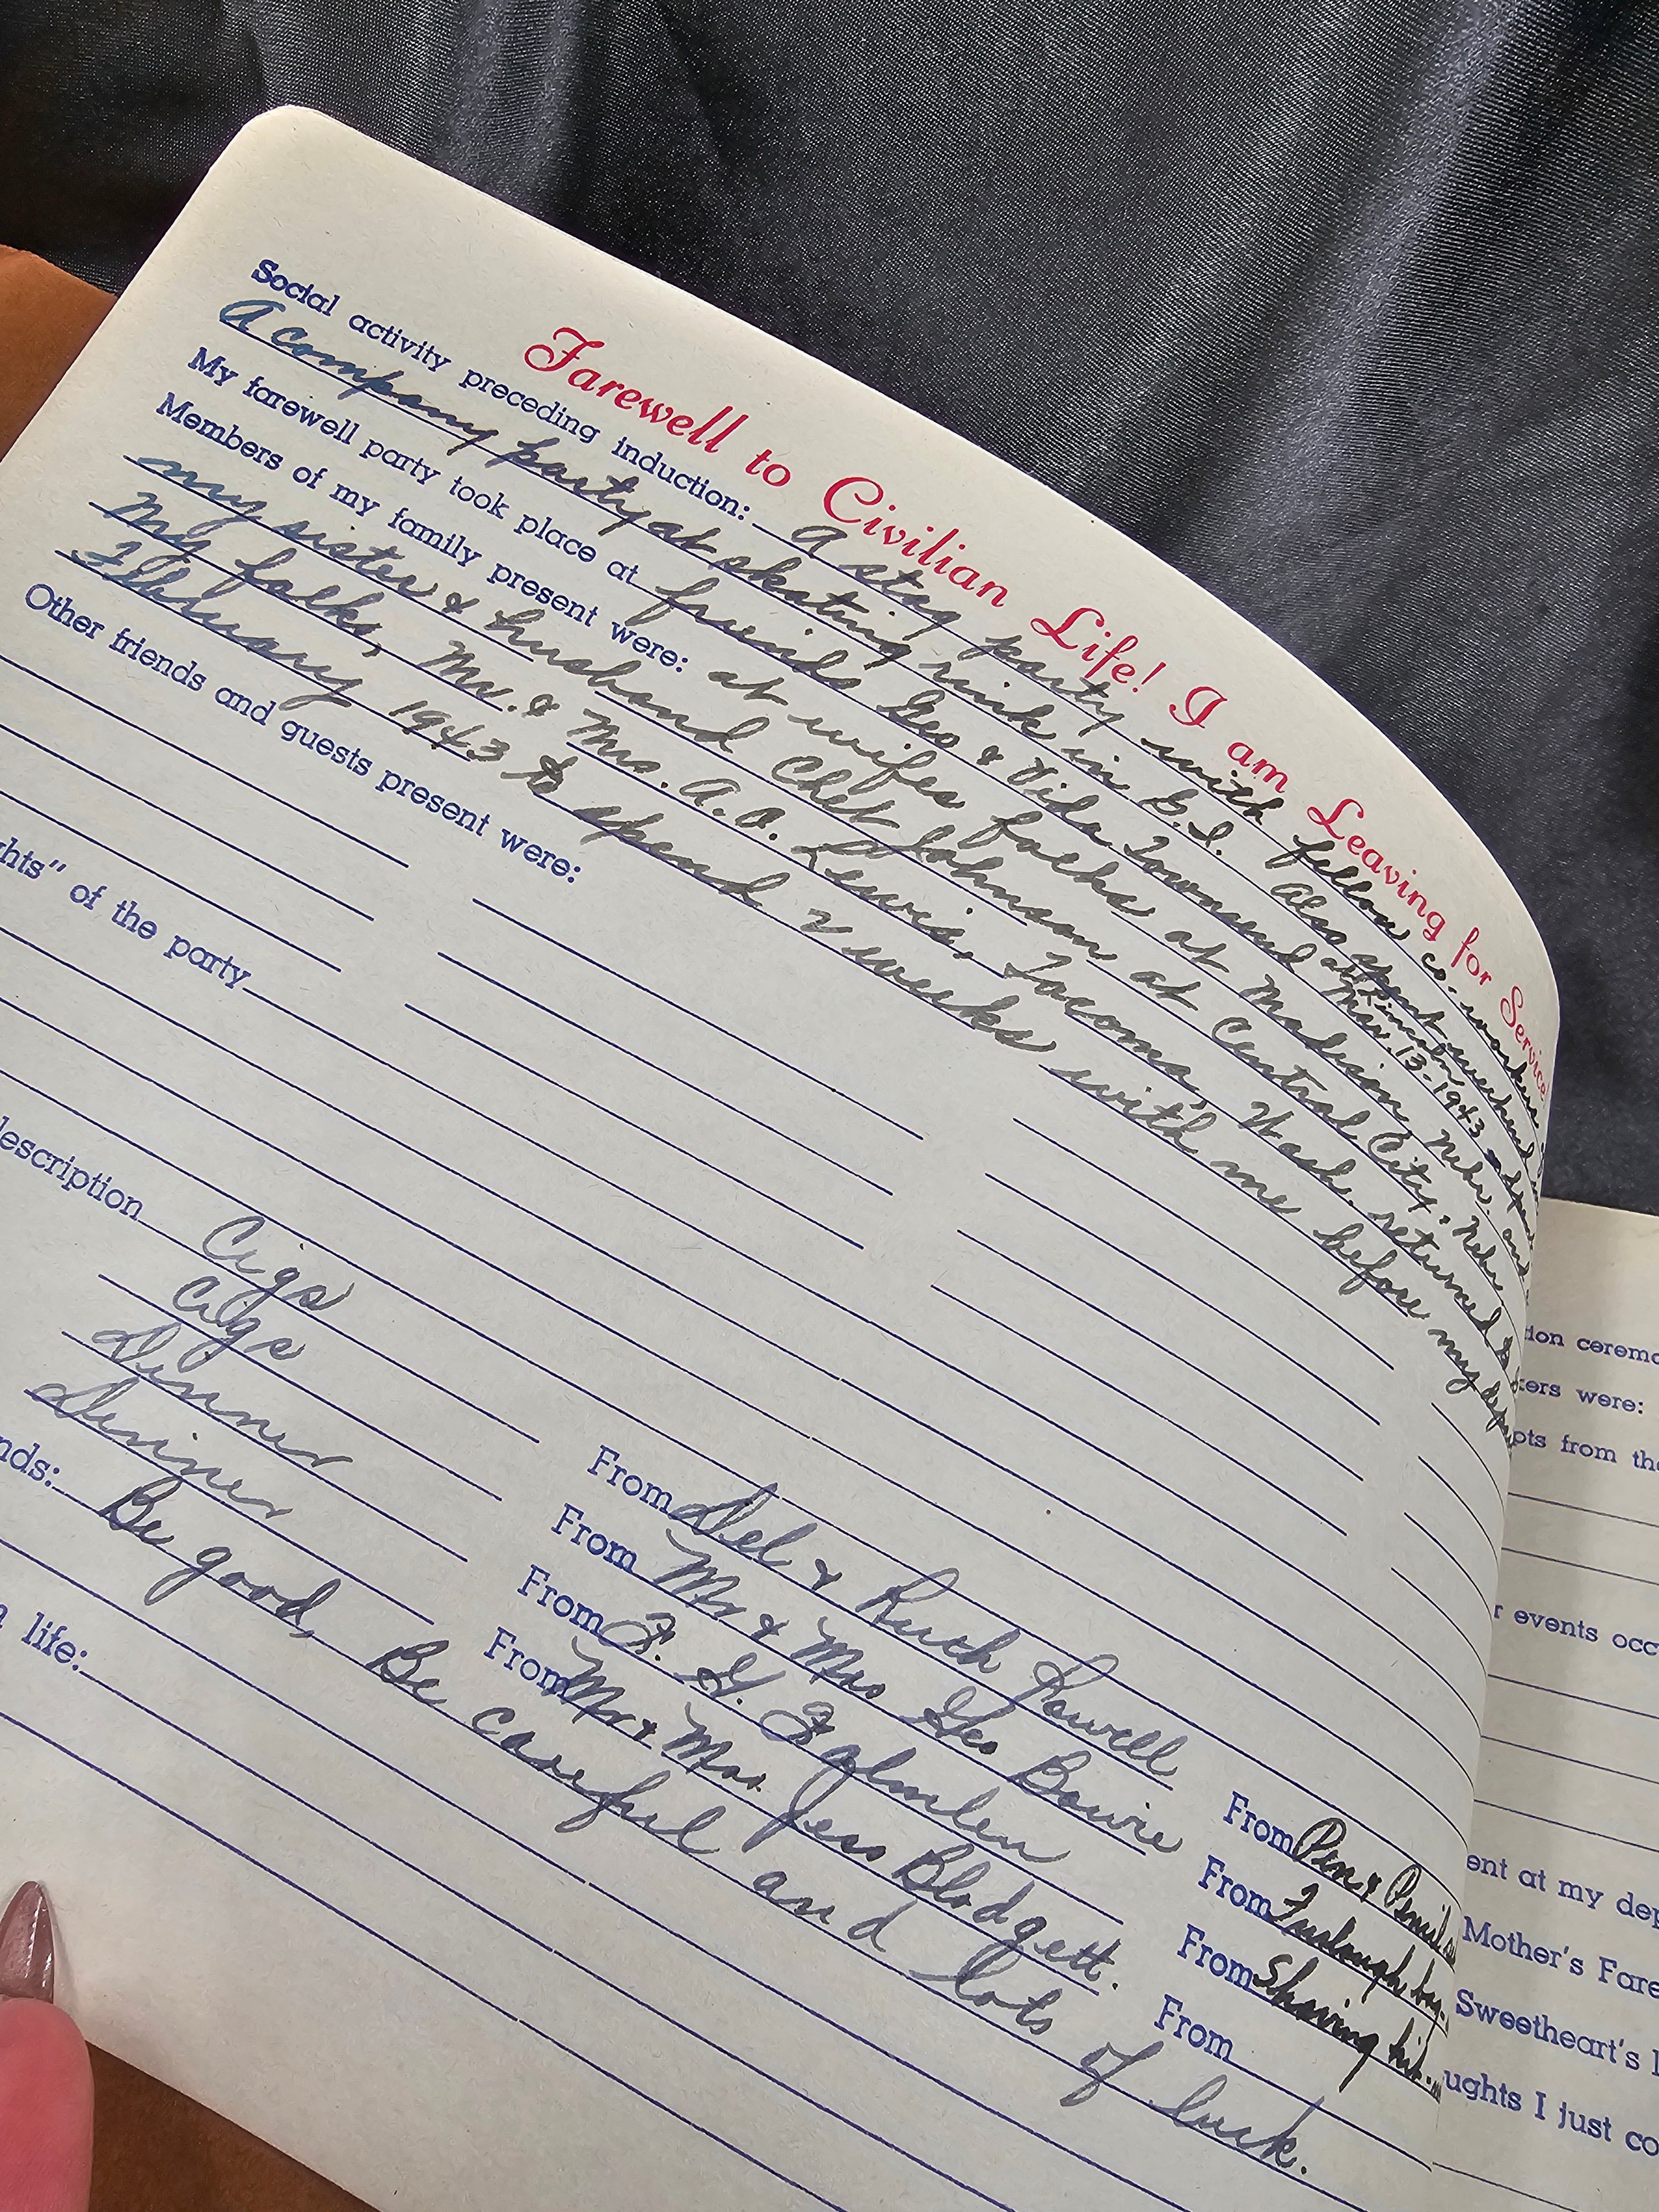 Farewell to Civilian Life! I am Leaving for Service
Social activity preceding induction: A stag party with fellow co. workers
A company party at skating rink in G.I. Also spent weekend
My farewell party took place at friends Geo & Vida Townsend at Mar. 13 - 1943 spent
Members of my family present were: at wifes folks at Madison, Nebr. and
my sister & husband Chet Johnson at Central City, Nebr.
My folks, Mr. & Mrs. A.O. Lewis, Tacoma, Wash. returned
February 1943 to spend 2 weeks with me before my
Other friends and guests present were:
ghts" of the party
description Cigs From Del & Ruth Powell From Pen & Pencil
Cigs From Mr & Mrs Geo Bowie From Furlough bag
Dinner From From Shaving kit
Dinner From Mr & Mrs. Jess Blodgett. From
nds: Be good, Be careful and lots of luck.
life:
tion ceremo
ers were:
pts from the
r events occ
ent at my dep
Mother's Fare
Sweetheart's
ughts I just co